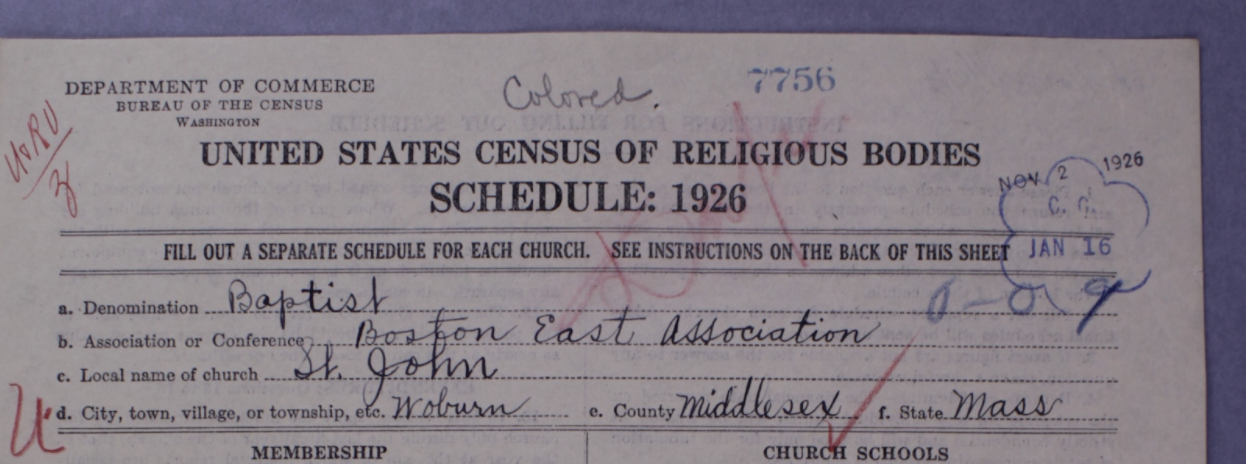 DEPARTMENT OF COMMERCE
BUREAU OF THE CENSUS
WASHINGTON
Colored.
7756
UNITED STATES CENSUS OF RELIGIOUS BODIES
SCHEDULE: 1926
NOV. 2 1926
C. C.
JAN 16
FILL OUT A SEPARATE SCHEDULE FOR EACH CHURCH. SEE INSTRUCTIONS ON THE BACK OF THIS SHEET
a. Denomination Baptist
b. Association or Conference Boston East Association
c. Local name of church St. John
d. City, town, village, or township, etc. Woburn e. County Middlesex f. State Mass
MEMBERSHIP CHURCH SCHOOLS